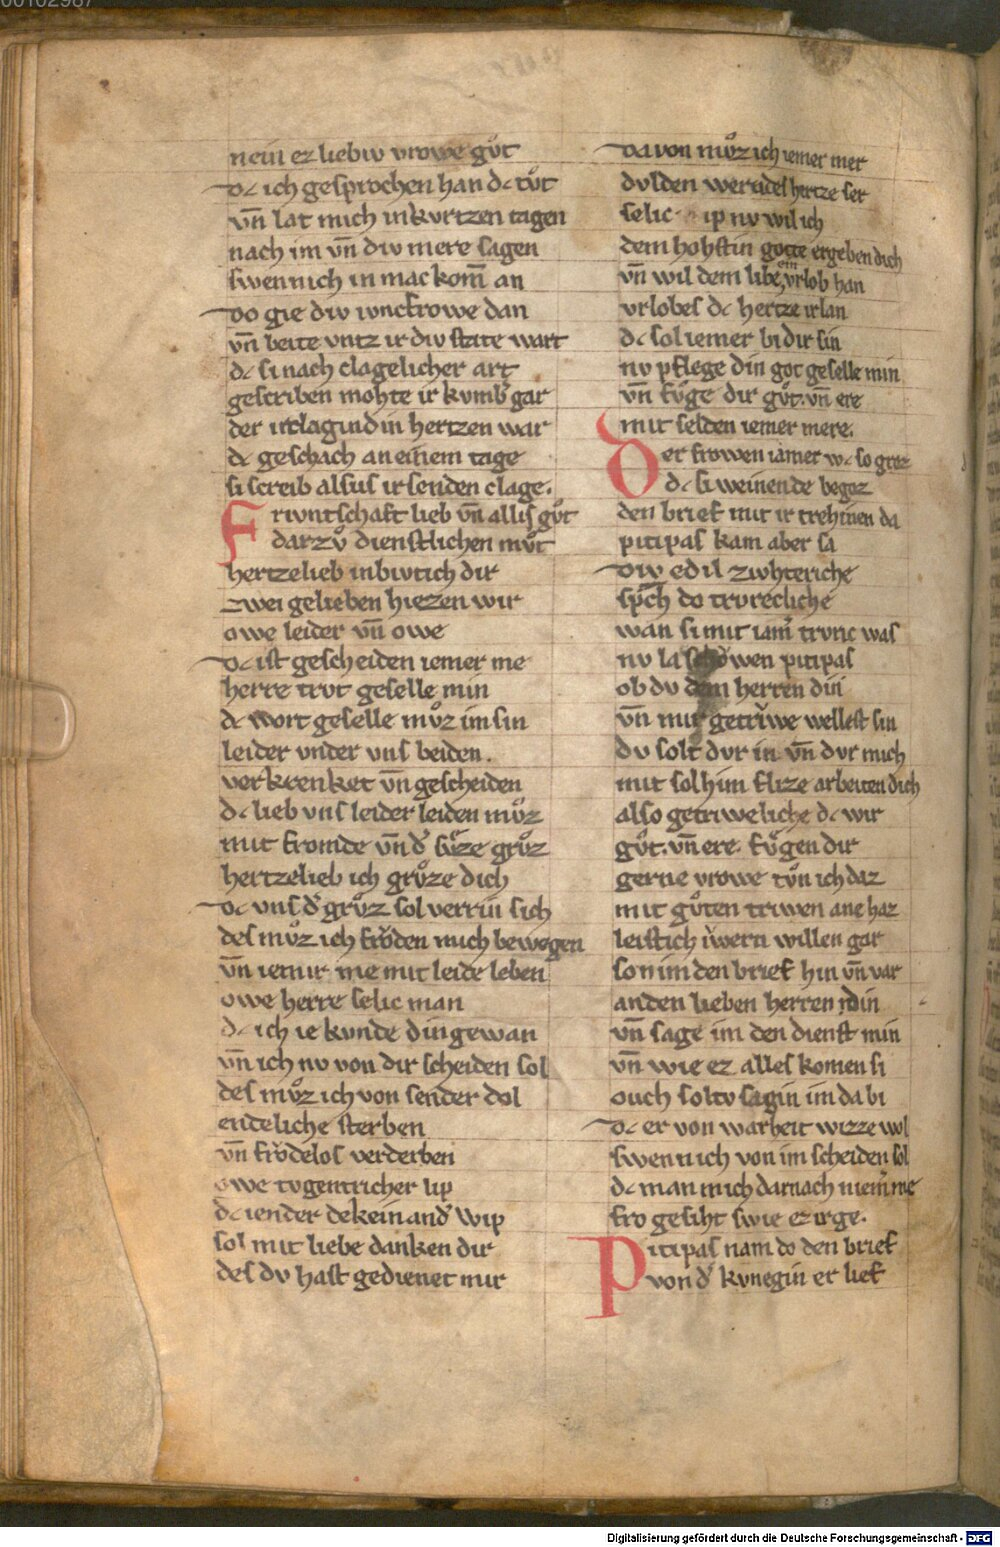 nein ez liebiv vrowe gv̊t
dc ich gesprochen han dc tv̊t
vn̄ lat mich in kvrtzen tagen
nach im vn̄ div mere sagen
swenn ich in mac kom̄ an
Do gie div ivncfrowe dan
vn̄ beite vntz ir div state wart
dc si nach clagelicher art
gescriben mohte ir kvmb͛ gar
der irclagind in hertzen war
dc geschach an einem tage
si screib alsus ir senden clage.
Frivntschaft lieb vn̄ allis gv̊t
darzv̊ dienstlichen mv̊t
hertzelieb inbivtich dir
zwei gelieben hiezen wir
owe leider vn̄ owe
dc ist gescheiden iemer me
herre trvt geselle min
dc wort geselle mv̊z im sin
leider vnder vns beiden.
verkrenket vn̄ gescheiden
dc lieb vns leider leiden mv̊z
mit fromde vn̄ d͛ sv̊ze grv̊z
hertzelieb ich grv̊ze dich
dc vns d͛ grv̊z sol verrin sich
des mv̊z ich frǒden mich bewegen
vn̄ iemir me mit leide leben
owe herre selic man
dc ich ie kvnde din gewan
vn̄ ich nv von dir scheiden sol
des mv̊z ich von sender dol
endeliche sterben
vn̄ frǒdelos verderben
owe tvgentricher lip
dc iender dekein and͛ wip
sol mit liebe danken dir
des dv hast gedienet mir
Davon mv̊z ich iemer mer
dvlden werndes hertze ser
selic ip nv wil ich
dem hohstin gotte ergeben dich
vn̄ wil dem libe ein vrlob han
vrlobes dc hertze irlan
dc sol iemer bi dir sin
nv pflege din got geselle min
vn̄ fv̊ge dir gv̊t. vn̄ ere
mit selden iemer mere.
Der frowen iamer wc so groz
dc si weinende begoz
den brief mit ir trehinen da
pitipas kam aber sa
Div edil zvhteriche
sp̄ch do trvrecliche
wan si mit iam͛ trvric was
nv la schǒwen pitipas
ob dv dem herren din
vn̄ mir getrv̊we wellest sin
dv solt dvr in vn̄ dvr mich
mit solhim flize arbeiten dich
also getriweliche dc wir
gv̊t. vn̄ ere. fv̊gen dir
gerne vrowe tv̊n ich daz
mit gv̊ten triwen ane haz
leist ich ivwern willen gar
so nim den brief hin vn̄ var
an den lieben herren din
vn̄ sage im den dienst min
vn̄ wie ez alles komen si
ouch soltv sagin im da bi
dc er von warheit wizze wol
swenn ich von im scheiden sol
dc man mich darnach niem͛ me
fro gesiht swie ez irge.
Pitipas nam do den brief
von d͛ kvnegin er lief
Digitalisierung gefördert durch die Deutsche Forschungsgemeinschaft - DFG